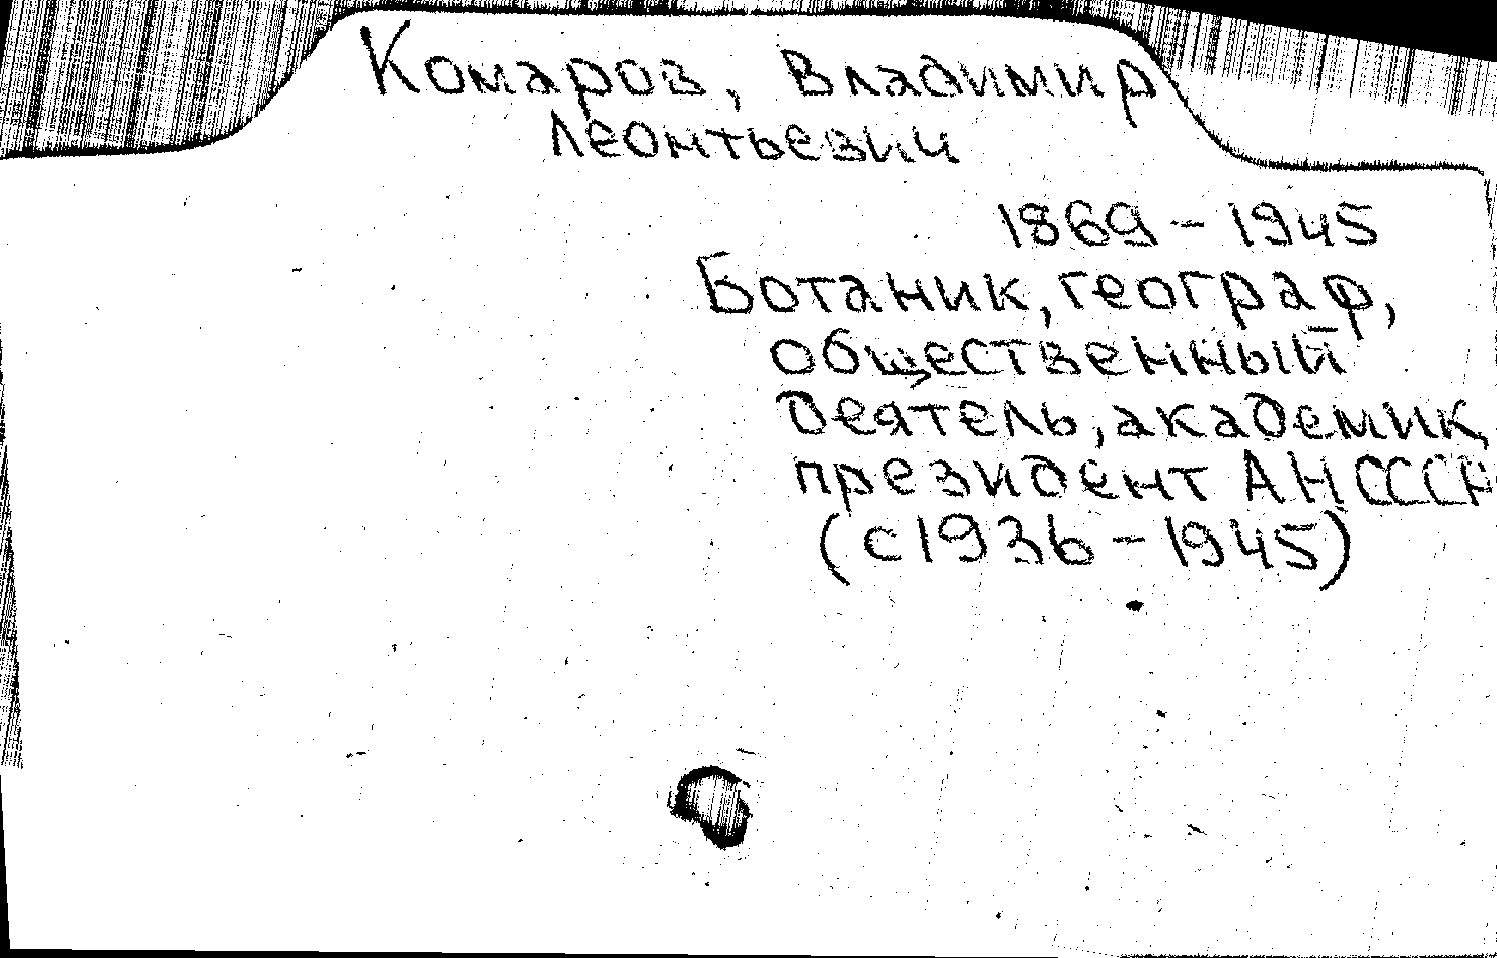 Комаров, Владимир
Леонтьевич
1869 - 1945
Ботаник, географ,
общественный
деятель, академик,
президент АН СССР
(с 1936 - 1945)